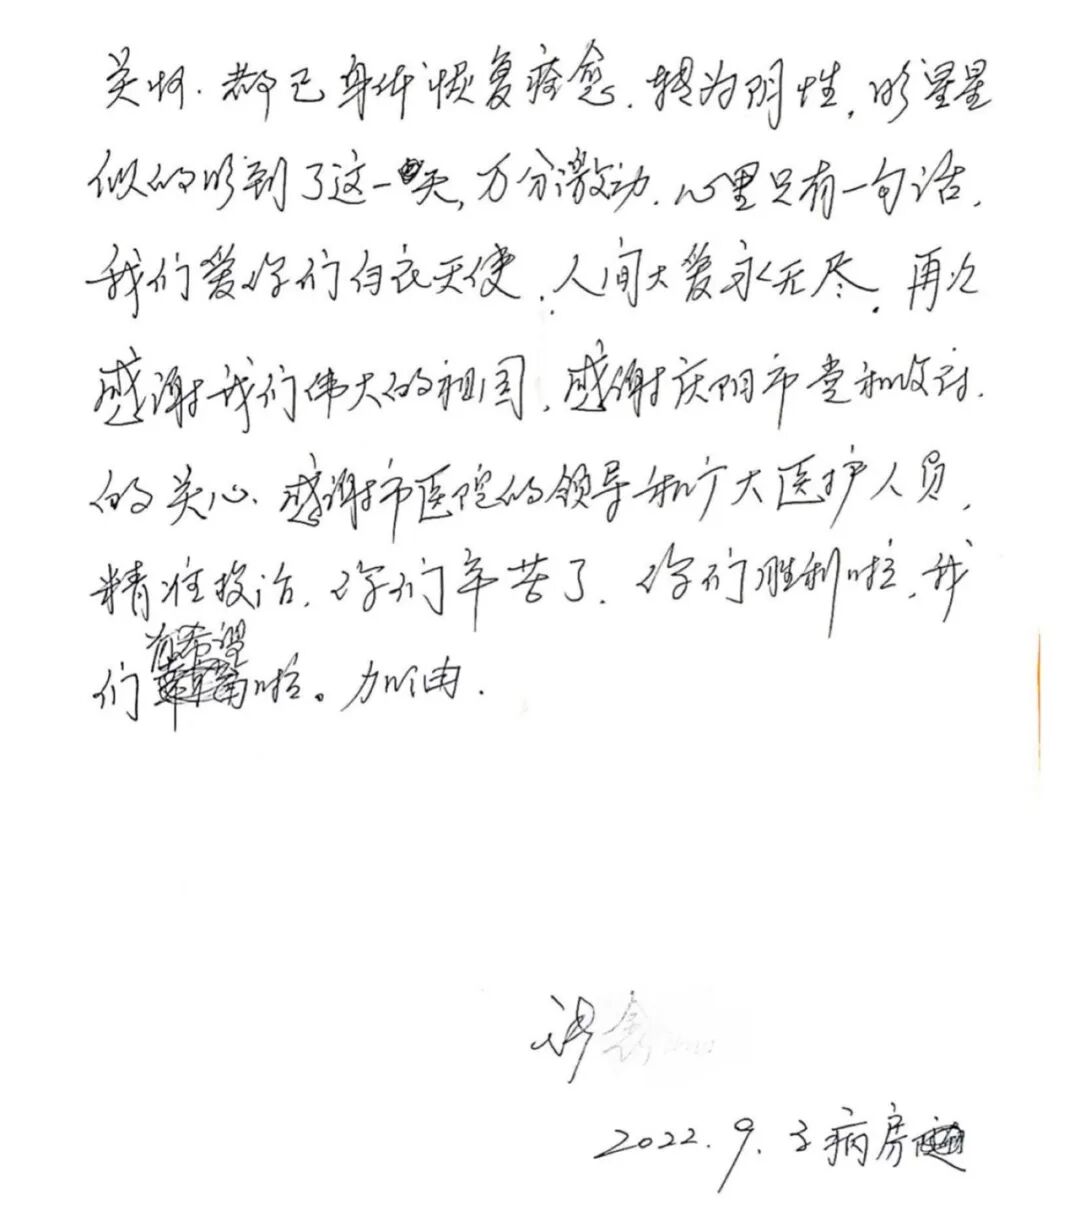 关怀. 都已身体恢复痊愈. 转为阴性, 盼星星
似的盼到了这一天, 万分激动. 心里只有一句话.
我们爱你们白衣天使. 人间大爱永无尽. 再次
感谢我们伟大的祖国, 感谢庆阳市党和政府.
的关心. 感谢市医院的领导和广大医护人员,
精准投治. 你们辛苦了. 你们胜利啦, 我
们有希望啦。加油.
2022. 9. 于病房